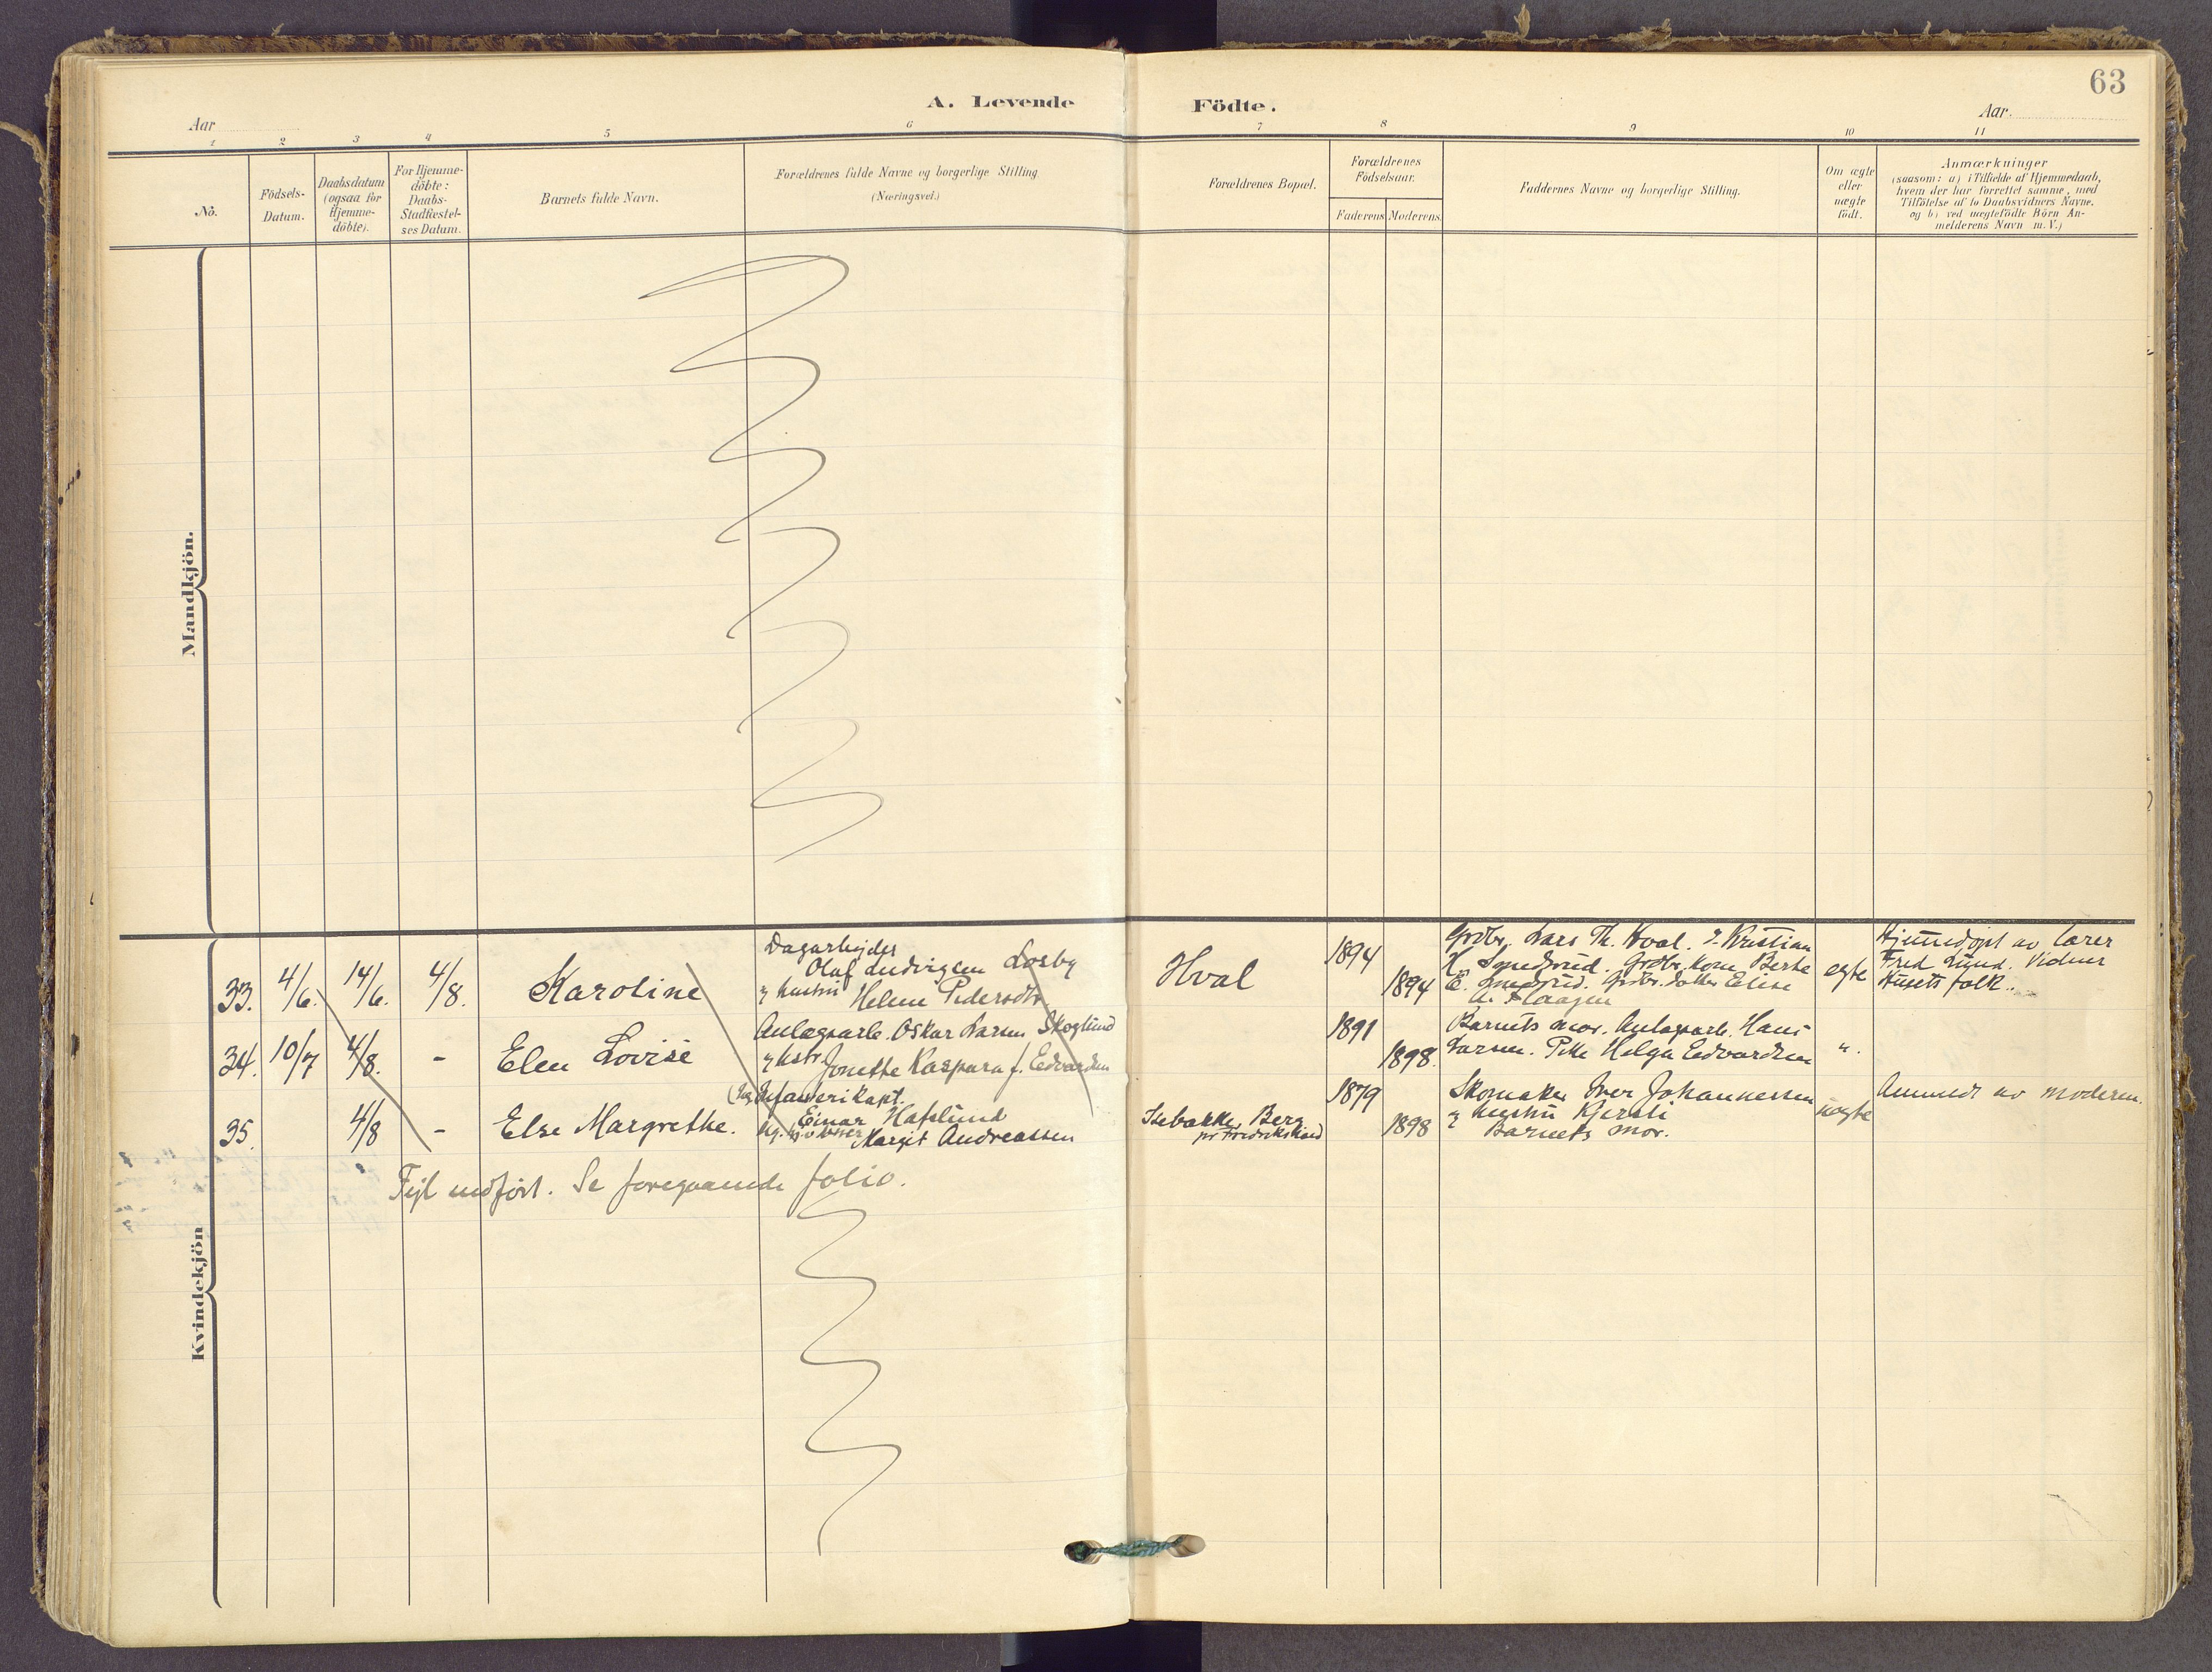 63
A. Levende Födte.
Aar
Aar.
1 2 3 4 5 6 7 8 9 10 11
No.
Födsels-
Datum.
Daabsdatum
(ogsaa for
Hjemme-
döbte).
For Hjemme-
döbte:
Daabs-
Stadfæstel-
ses Datum.
Barnets fulde Navn.
Forældrenes fulde Navne og borgerlige Stilling
(Næringsvei.)
Forældrenes Bopæl.
Forældrenes
Födselsaar.
Faderens Moderens.
Faddernes Navne og borgerlige Stilling.
Om ægte
eller
uægte
födt.
Anmærkninger
(saasom: a) i Tilfælde af Hjemmedaab,
hvem der har forrettet samme, med
Tilföielse af to Daabsvidners Navne.
og b) ved uægtefödte Börn An-
melderens Navn m.V.)
Mandkjön.
Kvindekjön
33. 4/6. 14/6. 4/8. Karoline
Dagarbejder
Olaf Ludvigsen Losby
& hustru Helene Pedersdtr.
Hval
1894
1894
Grdbr. Lars Th. Hval. I. Kristian
H. Smedsrud. Grdbr. kone Berte
E. Smedsrud. Grdbr. datter Elise
A. Haagen
egte
Hjemmedøpt av lærer
Fred Lund. Vidner
Husets folk.
34. 10/7 4/8. - Elen Lovise
Anlægsarb. Oskar Larsen Skoglund
& hstr. Jonette Kaspara f. Edvardsen
1891
1898.
Barnets mor. Anlægsarb. Hans
Larsen. Pike Helga Edvardsen
".
35. 4/8 - Else Margrethe.
Infanterikapt.
Einar Hafslund
Margit Andreassen
Isebakke, Berg
pr Fredrikshald
1879
1898
Skomaker Iver Johannessen
& hustru Kjersti
Barnets mor.
uegte
Anmeldt av moderen.
Fejl indført. Se foregaaende folio.